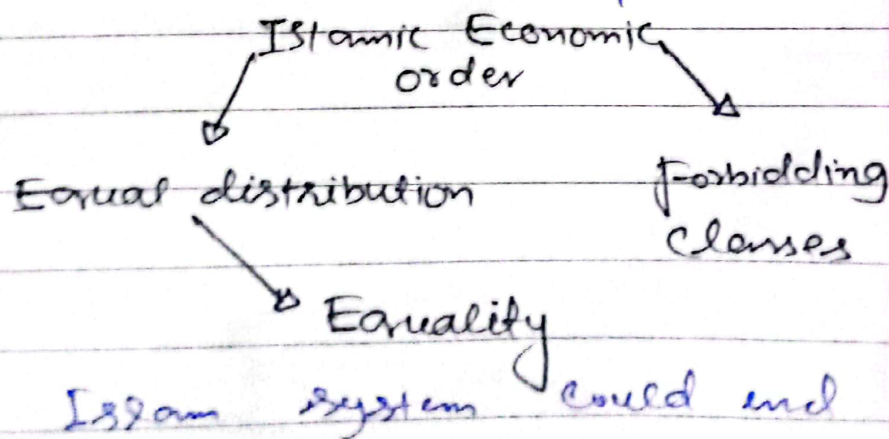 Islamic Economic
order
Equal distribution
Forbidding
Classes
Equality
Islam system could end